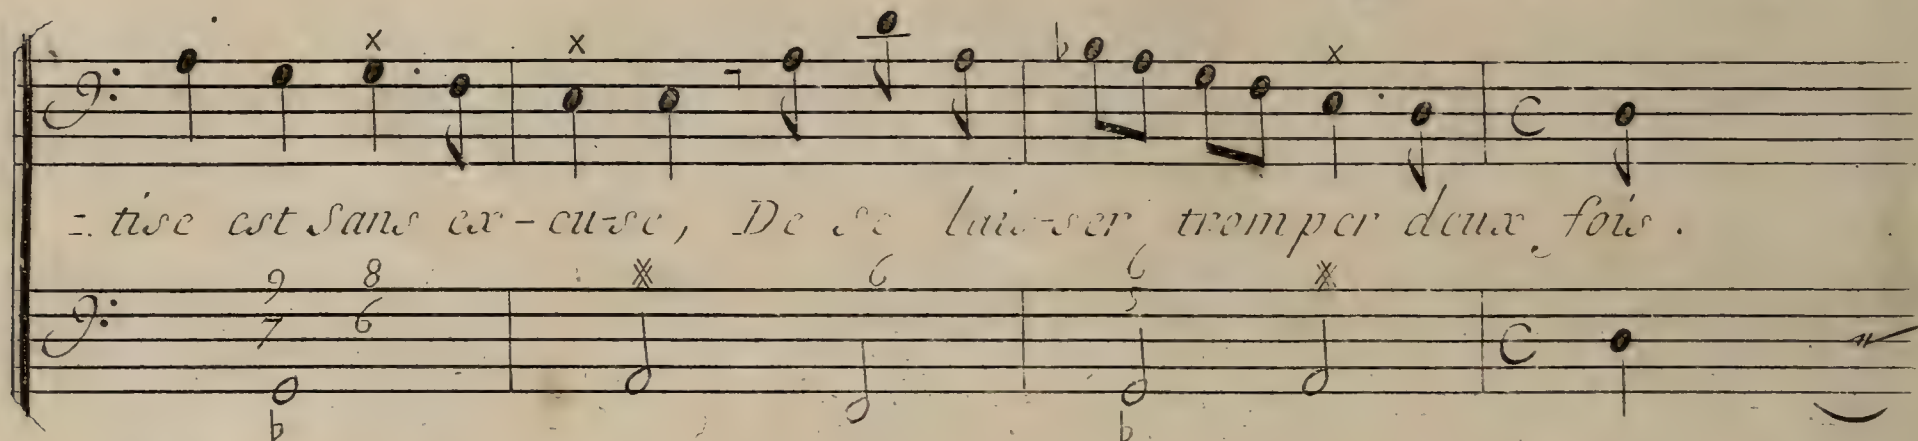 =. tise est sans ex-cu-se, De se lais-ser tromper deux fois.
9 8 6 6
7 6 5